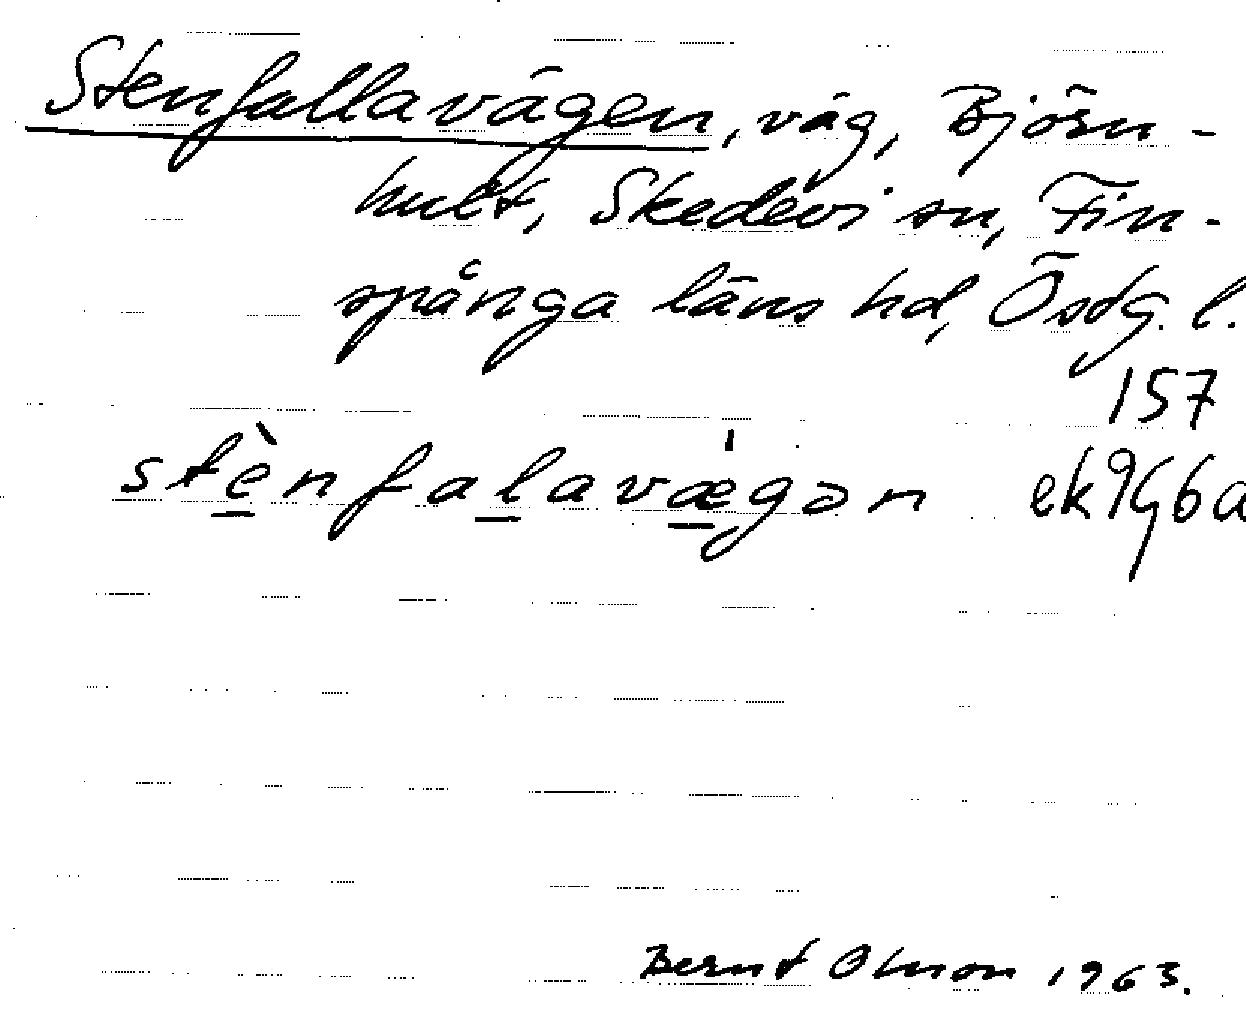 Stenfallavägen, väg, Björn-
hult, Skedevi sn, Fin-
spånga läns hd, Östg. l.
157
stènfalavægən ek 9G6a
Bernt Olsson 1963.